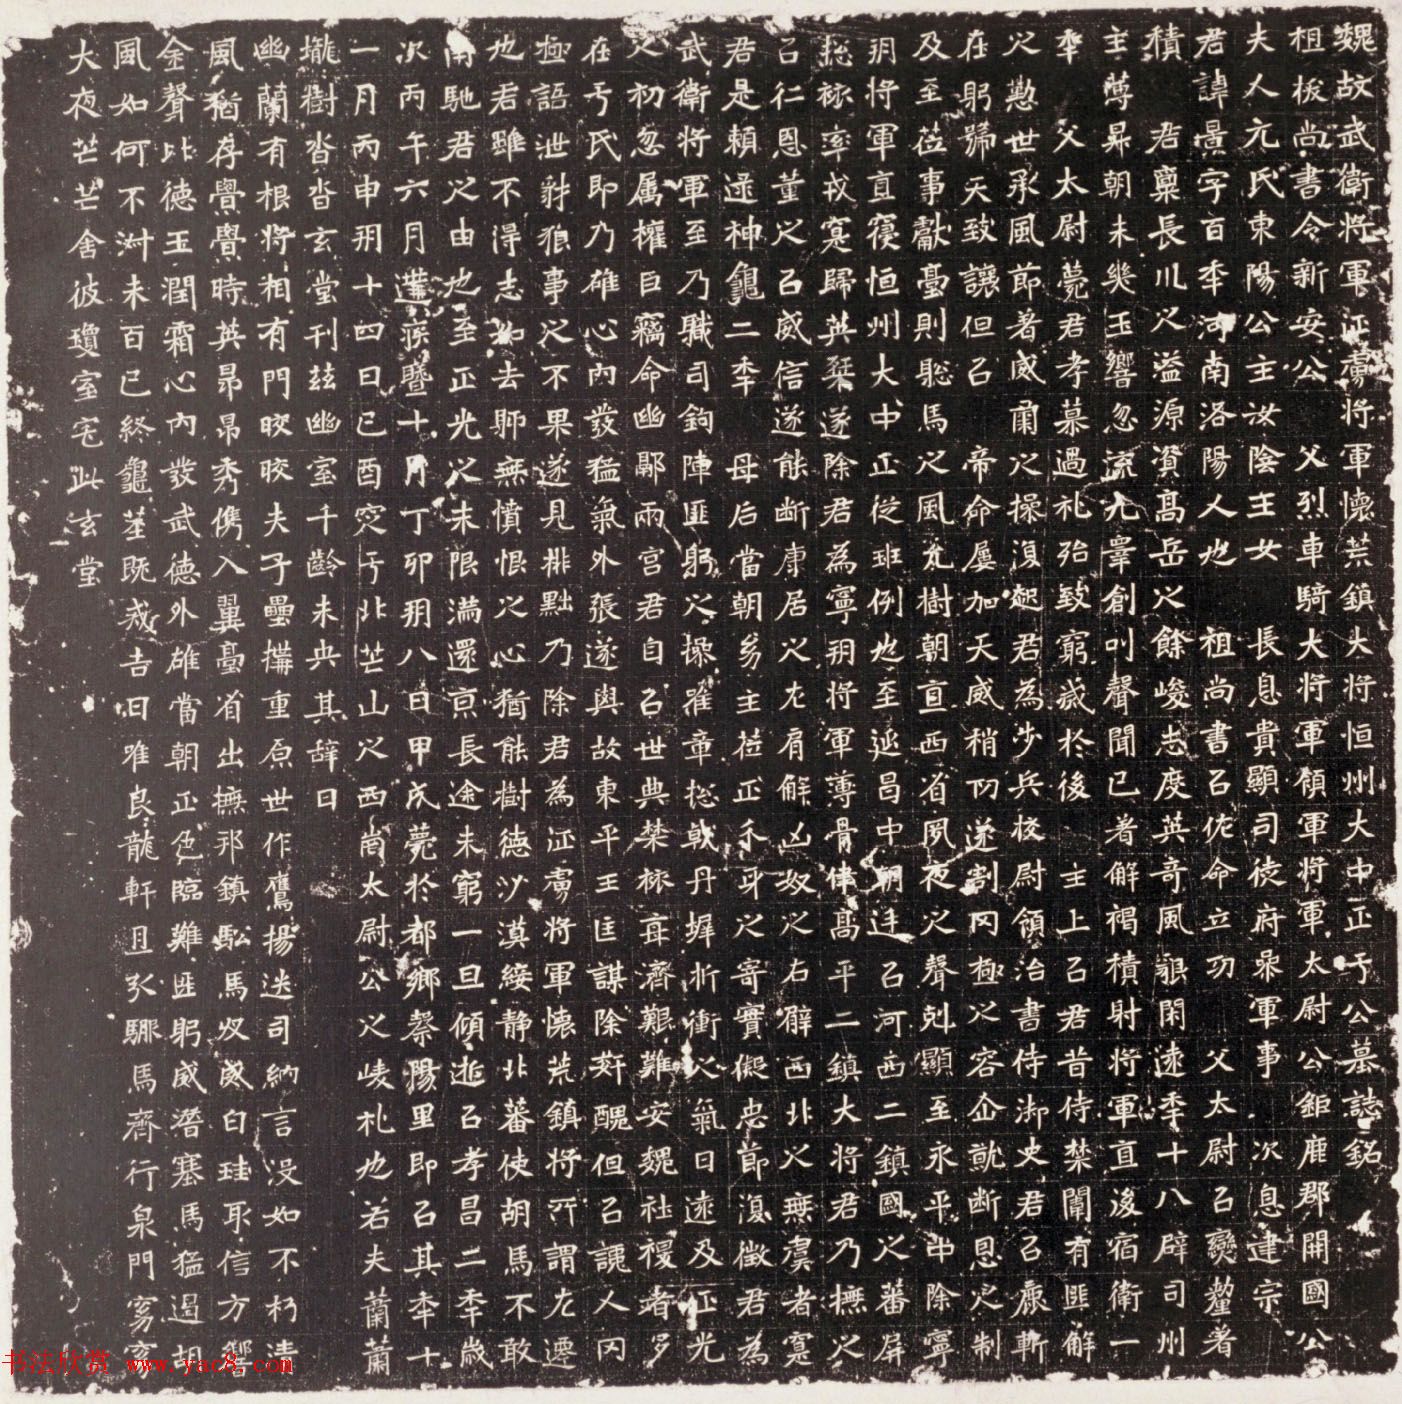 魏故武衛將軍征虜將軍懷荒鎮大將恒州大中正于公墓誌銘
祖拔尚書令新安公 父烈車騎大將軍領軍將軍太尉公鉅鹿郡開國公
夫人元氏東陽公主汝陰王女 長息貴顯司徒府參軍事 次息建宗
君諱景字百年河南洛陽人也 祖尚書㠯佐命立功 父太尉㠯燮釐著
積 君稟長川之溢源資高岳之餘峻志度英奇風韻閑遠年十八辟司州
主薄昇朝未幾玉響忽流九睪創叫聲聞已著解褐積射將軍直後宿衛一
年 父太尉薨君孝慕過礼殆致窮滅於後 主上㠯君昔侍禁闈有匪解
之懃世承風節著威肅之操復起君為步兵校尉領治書侍御史君㠯麻斬
在躬號天致讓但㠯 帝命屢加天威稍切遂割罔極之容企就斷恩之制
及至莅事獻臺則驄馬之風允樹朝直西省夙夜之聲剋顯至永平中除寧
朔將軍直寢恒州大中正從班例也至延昌中朝廷㠯河西二鎮國之蕃屏
捴旅率戎寔歸英桀遂除君為寧朔將軍薄骨律高平二鎮大將君乃撫之
㠯仁恩董之㠯威信遂能断康居之左肩解凶奴之右臂西北之無虞者寔
君是賴逯神龜二年 母后當朝幼主莅正爪牙之寄實儗忠節復徵君為
武衛將軍至乃職司鉤陣匪躬之操唯章捴戟丹墀折衝之氣日遠及正光
之初忽属權臣竊命幽鄏兩宫君自㠯世典禁旅毎濟艱難安魏社稷者多
在于氏即乃雄心內發猛氣外張遂與故東平王匡謀除奸醜但㠯讒人罔
極語泄豺狼事之不果遂見排黜乃除君為征虜將軍懷荒鎮將所謂左遷
也君雖不淂志如去師無憤恨之心猶能樹德沙漠綏静北蕃使胡馬不敢
南馳君之由也至正光之末限滿還京長途未窮一旦傾逝㠯孝昌二年歲
次丙午六月遘疾曁十月丁卯朔八日甲戌薨於都鄉穀陽里即㠯其年十
一月丙申朔十四日己酉窆于北芒山之西崗太尉公之崚札也若夫蘭蕭
壠樹沓沓玄堂刊兹幽室千齡未央其辞曰
幽蘭有根將相有門晈晈夫子壘搆重原世作鷹揚迭司納言没如不朽清
風猶存舋舋時英昂昂秀儁入翼臺省出撫邦鎮䭾馬収威白珪取信方響
金聲比德玉潤霜心內發武德外雄當朝正色臨難匪躬威潛塞馬猛遏胡
風如何不淑未百已終龜筮既戒吉日唯良龍軒且引驂馬齊行泉門窈窈
大夜芒芒舍彼瓊室宅此玄堂
书法欣赏 www.yac8.com